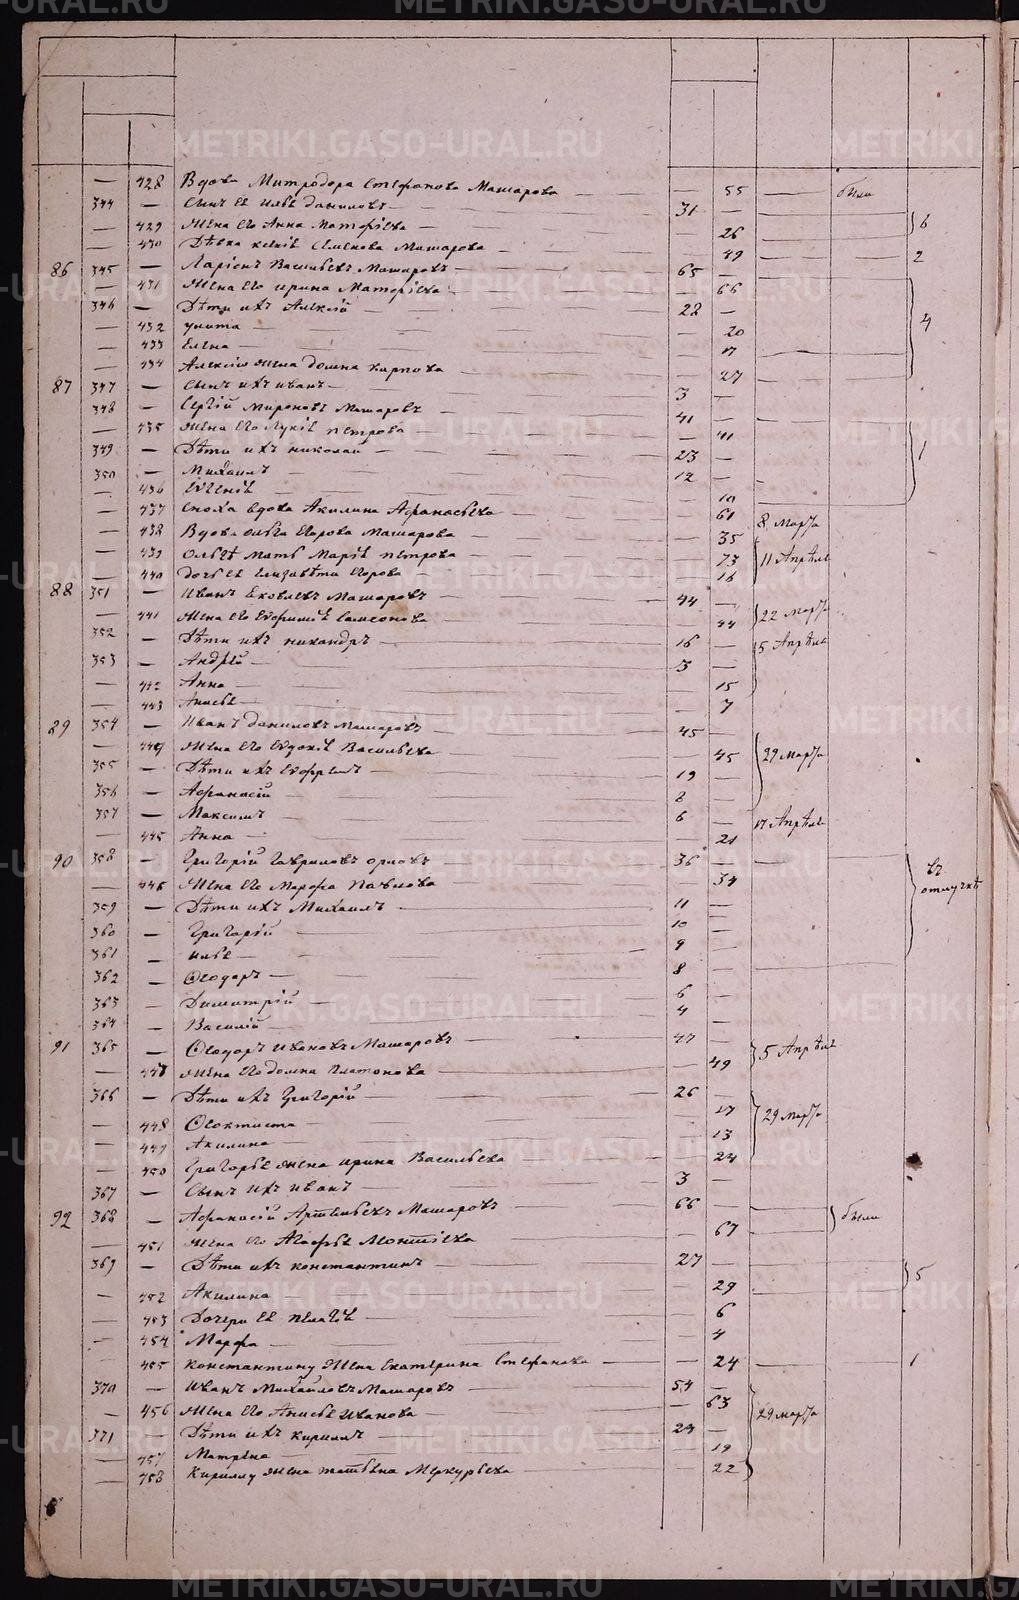 — 428 Вдова Митродора Стефанова Машарова — 55 — были
344 — Сынъ ея Илья Даниловъ — 31 —
— 429 Жена его Анна Матфіева — 26 — 6
— 430 Дѣвка Семенова Машарова — 49 — 2
86 345 — Ларіонъ Васильевъ Машаровъ — 65 —
— 431 Жена его Ирина Матфіева — 66
346 — Дѣти ихъ Алексій — 22 — 4
— 432 Улита — 20
— 433 Елена — 17 —
— 434 Алексію жена Домна Карпова — 27 —
87 347 — Сынъ ихъ Иванъ — 3 —
348 — Сергій Мироновъ Машаровъ — 41 —
— 435 Жена его Лукія Петрова — 41 1
349 — Дѣти ихъ Николай — 23 —
350 — Михаилъ — 12 —
— 436 Евгенія — 10 —
— 437 Сноха вдова Акилина Афанасьева — 61 8 Марта
— 438 Вдова Ольга Егорова Машарова — 35
— 439 Ольги мать Марія Петрова — 73 11 Апрѣля
— 440 Дочь ея Елизавета Егорова — 16
88 351 — Иванъ Яковлевъ Машаровъ — 44 —
— 441 Жена его Евфимія Самсонова — 44 22 Марта
352 — Дѣти ихъ Никандръ — 16 — 5 Апрѣля
353 — Андрей — 3 —
— 442 Анна — 15
— 443 Анисья — 7
89 354 — Иванъ Даниловъ Машаровъ — 45 —
— 444 Жена его Евдокія Васильева — 45 29 Марта
355 — Дѣти ихъ Ефремъ — 19 —
356 — Афанасій — 8 —
357 — Максимъ — 6 — 17 Апрѣля
— 445 Анна — 21
90 358 — Григорій Гавриловъ Орловъ — 36 — въ отлучкѣ
— 446 Жена его Марфа Павлова — 34
359 — Дѣти ихъ Михаилъ — 11 —
360 — Григорій — 10 —
361 — Илья — 9 —
362 — Ѳеодоръ — 8 —
363 — Димитрій — 6 —
364 — Василій — 4 —
91 365 — Ѳеодоръ Ивановъ Машаровъ — 47 — 5 Апрѣля
— 447 Жена его Домна Платонова — 49
366 — Дѣти ихъ Григорій — 26 —
— 448 Ѳеоктиста — 17 29 Марта
— 449 Акилина — 13
— 450 Григорья жена Ирина Васильева — 24
367 — Сынъ ихъ Иванъ — 3 —
92 368 — Афанасій Артемьевъ Машаровъ — 66 — были
— 451 Жена его Агафья — 67
369 — Дѣти ихъ Константинъ — 27 — 5
— 452 Акилина — 29
— 453 Дочери ея Пелагія — 6
— 454 Марфа — 4
— 455 Константину жена Екатерина Стефанова — 24 — 1
370 — Иванъ Михайловъ Машаровъ — 54 —
— 456 Жена его Анисья Иванова — 63 29 Марта
371 — Дѣти ихъ Кирилъ — 24 —
— 457 Матрена — 19
— 458 Кириллу жена Татьяна Меркурьева — 22
METRIKI.GASO-URAL.RU